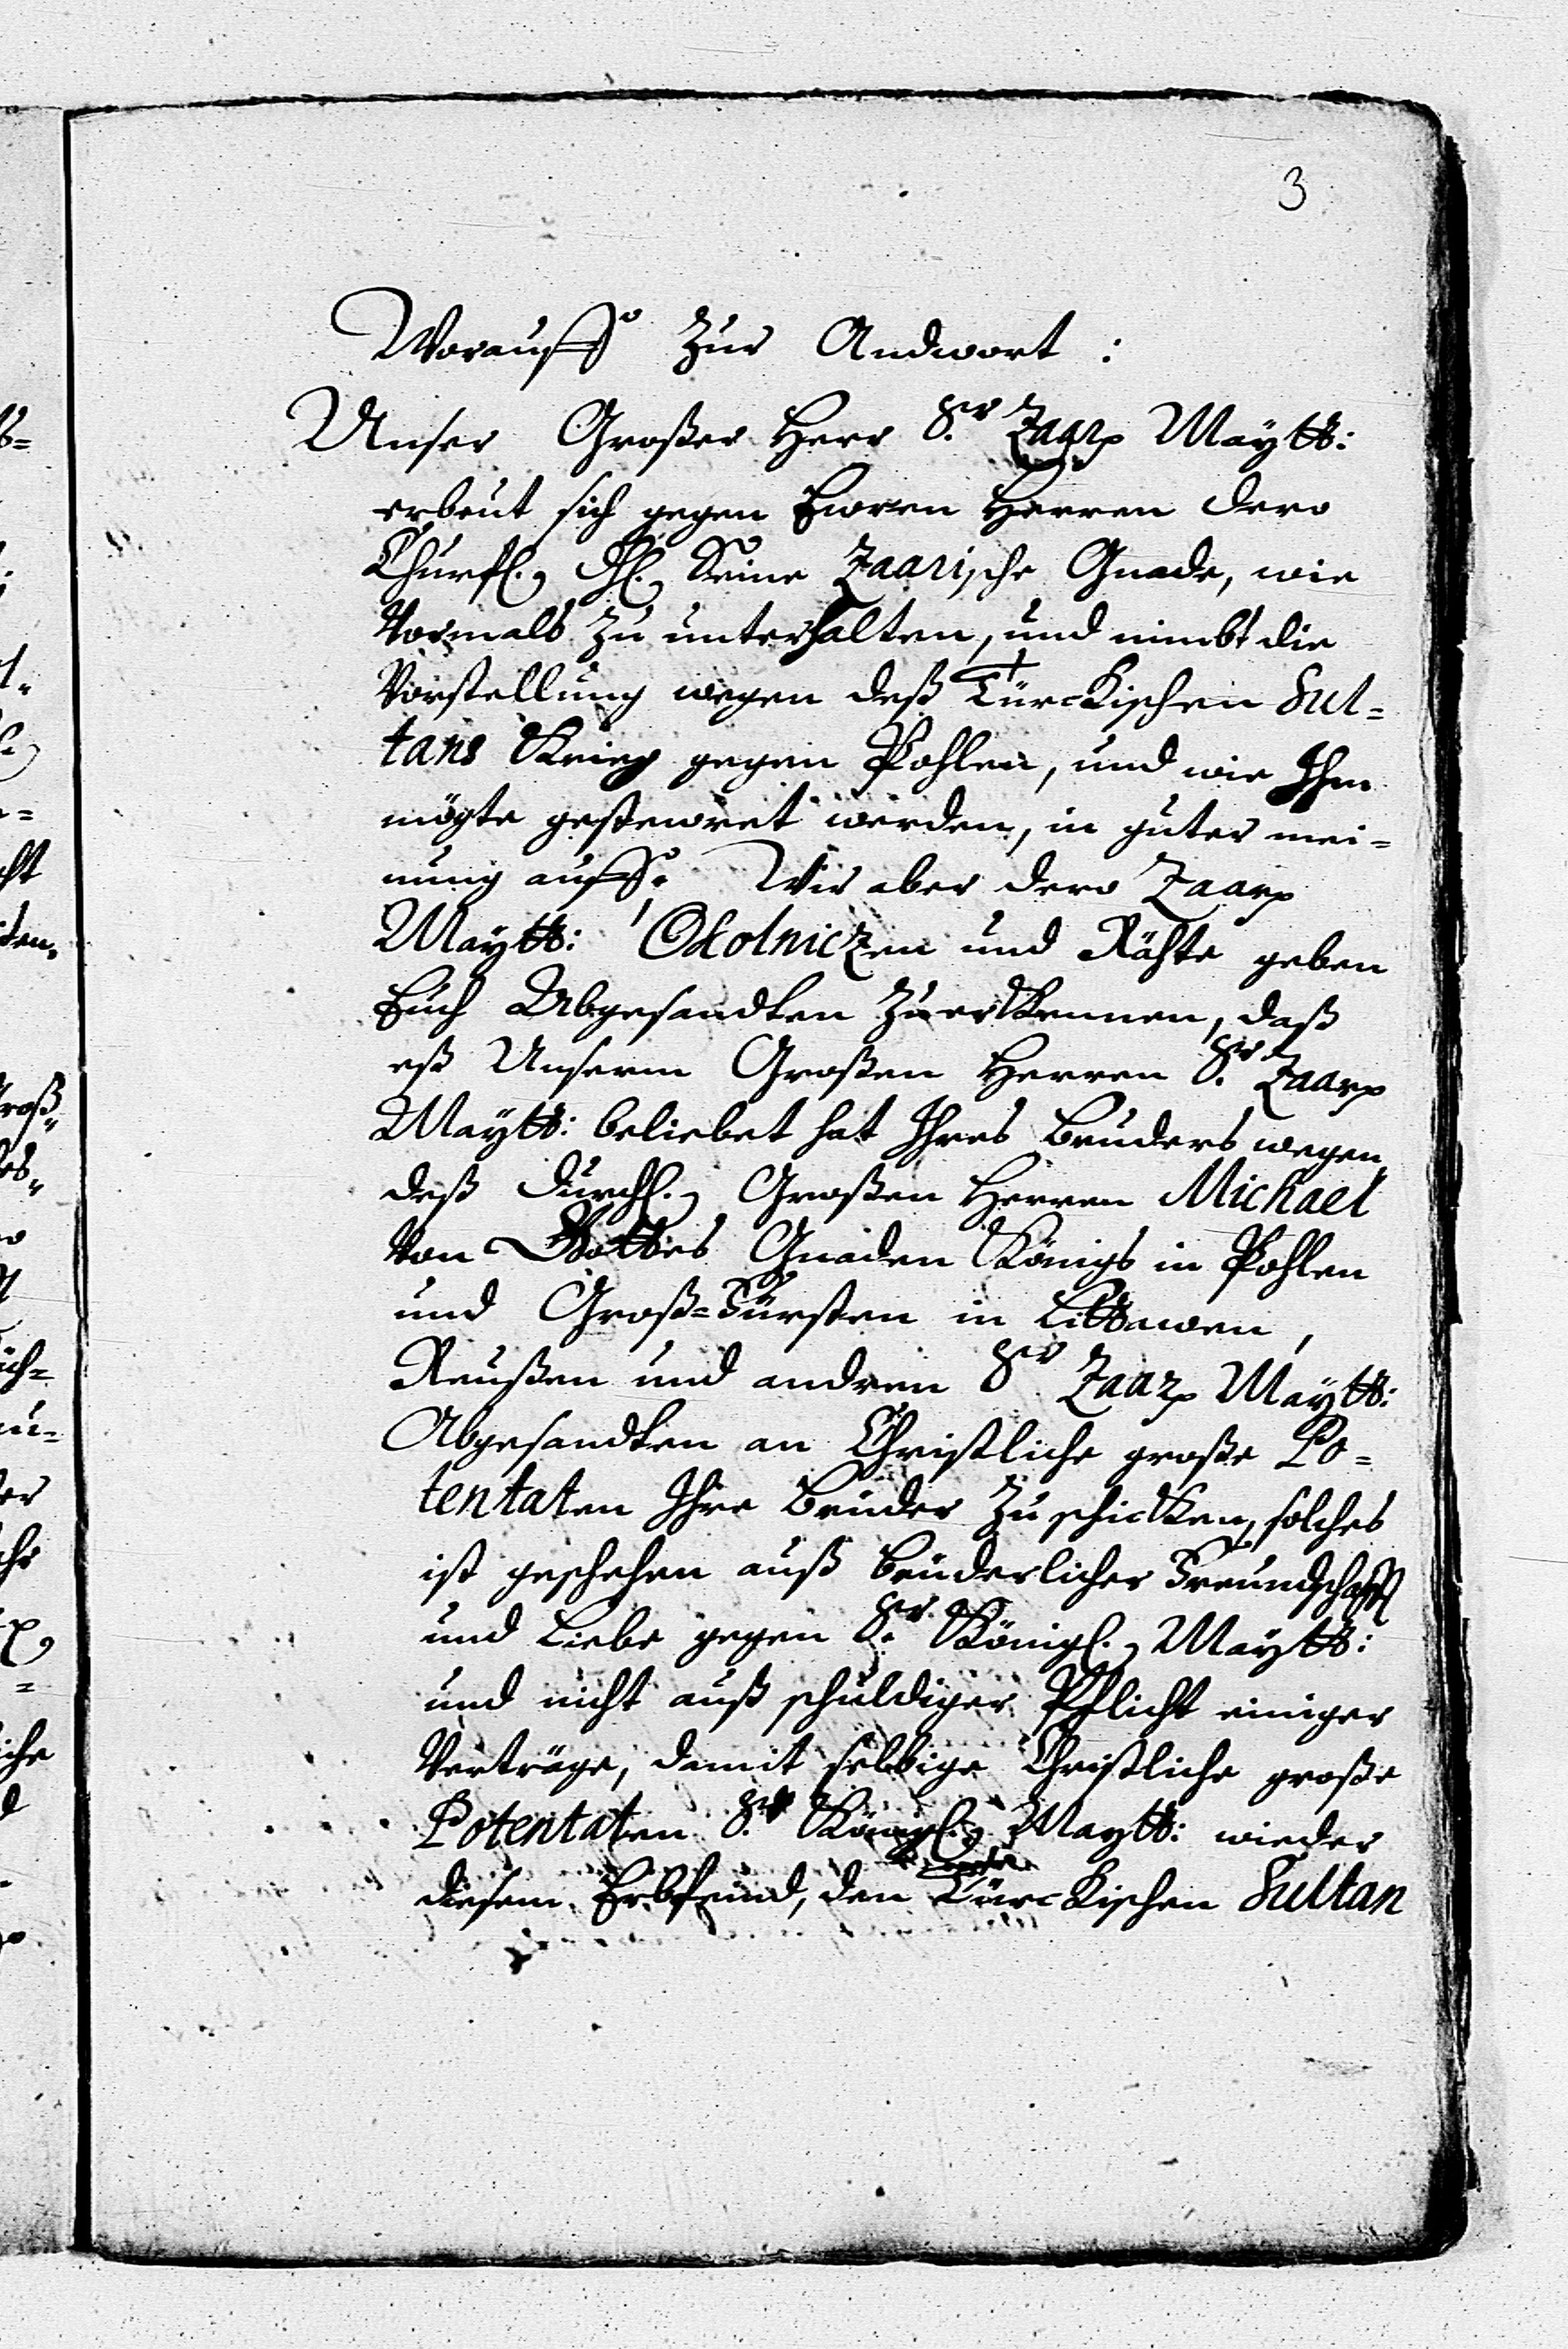 3
Worauff zur Andwort :
Unser Großer Herr S.er Zaarz Maÿtt:
erbeut sich gegen Ewren Herren dero
Churfl. Dl. Seine Zaarische Gnade, wie
Vormals zu unterhalten, und nimbt die
Vorstellung wegen deß Türckischen Sul=
tans Krieg gegen Pohlen, und wie Ihm
mögte gestewret werden, in guter mei=
nung auff. Wir aber dero Zaarz
Maÿtt: Okolniczen und Rähte geben
Euch Abgesandten zuerkennen, daß
eß Unserm Großen Herren S.er Zaarz
Maÿtt: beliebet hat Ihres Bruders wegen
deß Durchl. Großen Herren Michael
Von Gottes Gnaden Königs in Pohlen
und Groß=Fürsten in Littawen,
Reußen und andren S.er Zaarz Maÿtt:
Abgesandten an Christliche große Po=
tentaten Ihre Brüder zu schicken, solches
ist geschehen auß brüderlicher Freundschafft
und Liebe gegen S.er Königl. Maÿtt:
und nicht auß schuldiger Pflicht einiger
Verträge, damit selbige Christliche große
Potentaten S.er Königl. Maytt: wieder
diesem Erbfeind, den Türckischen Sultan